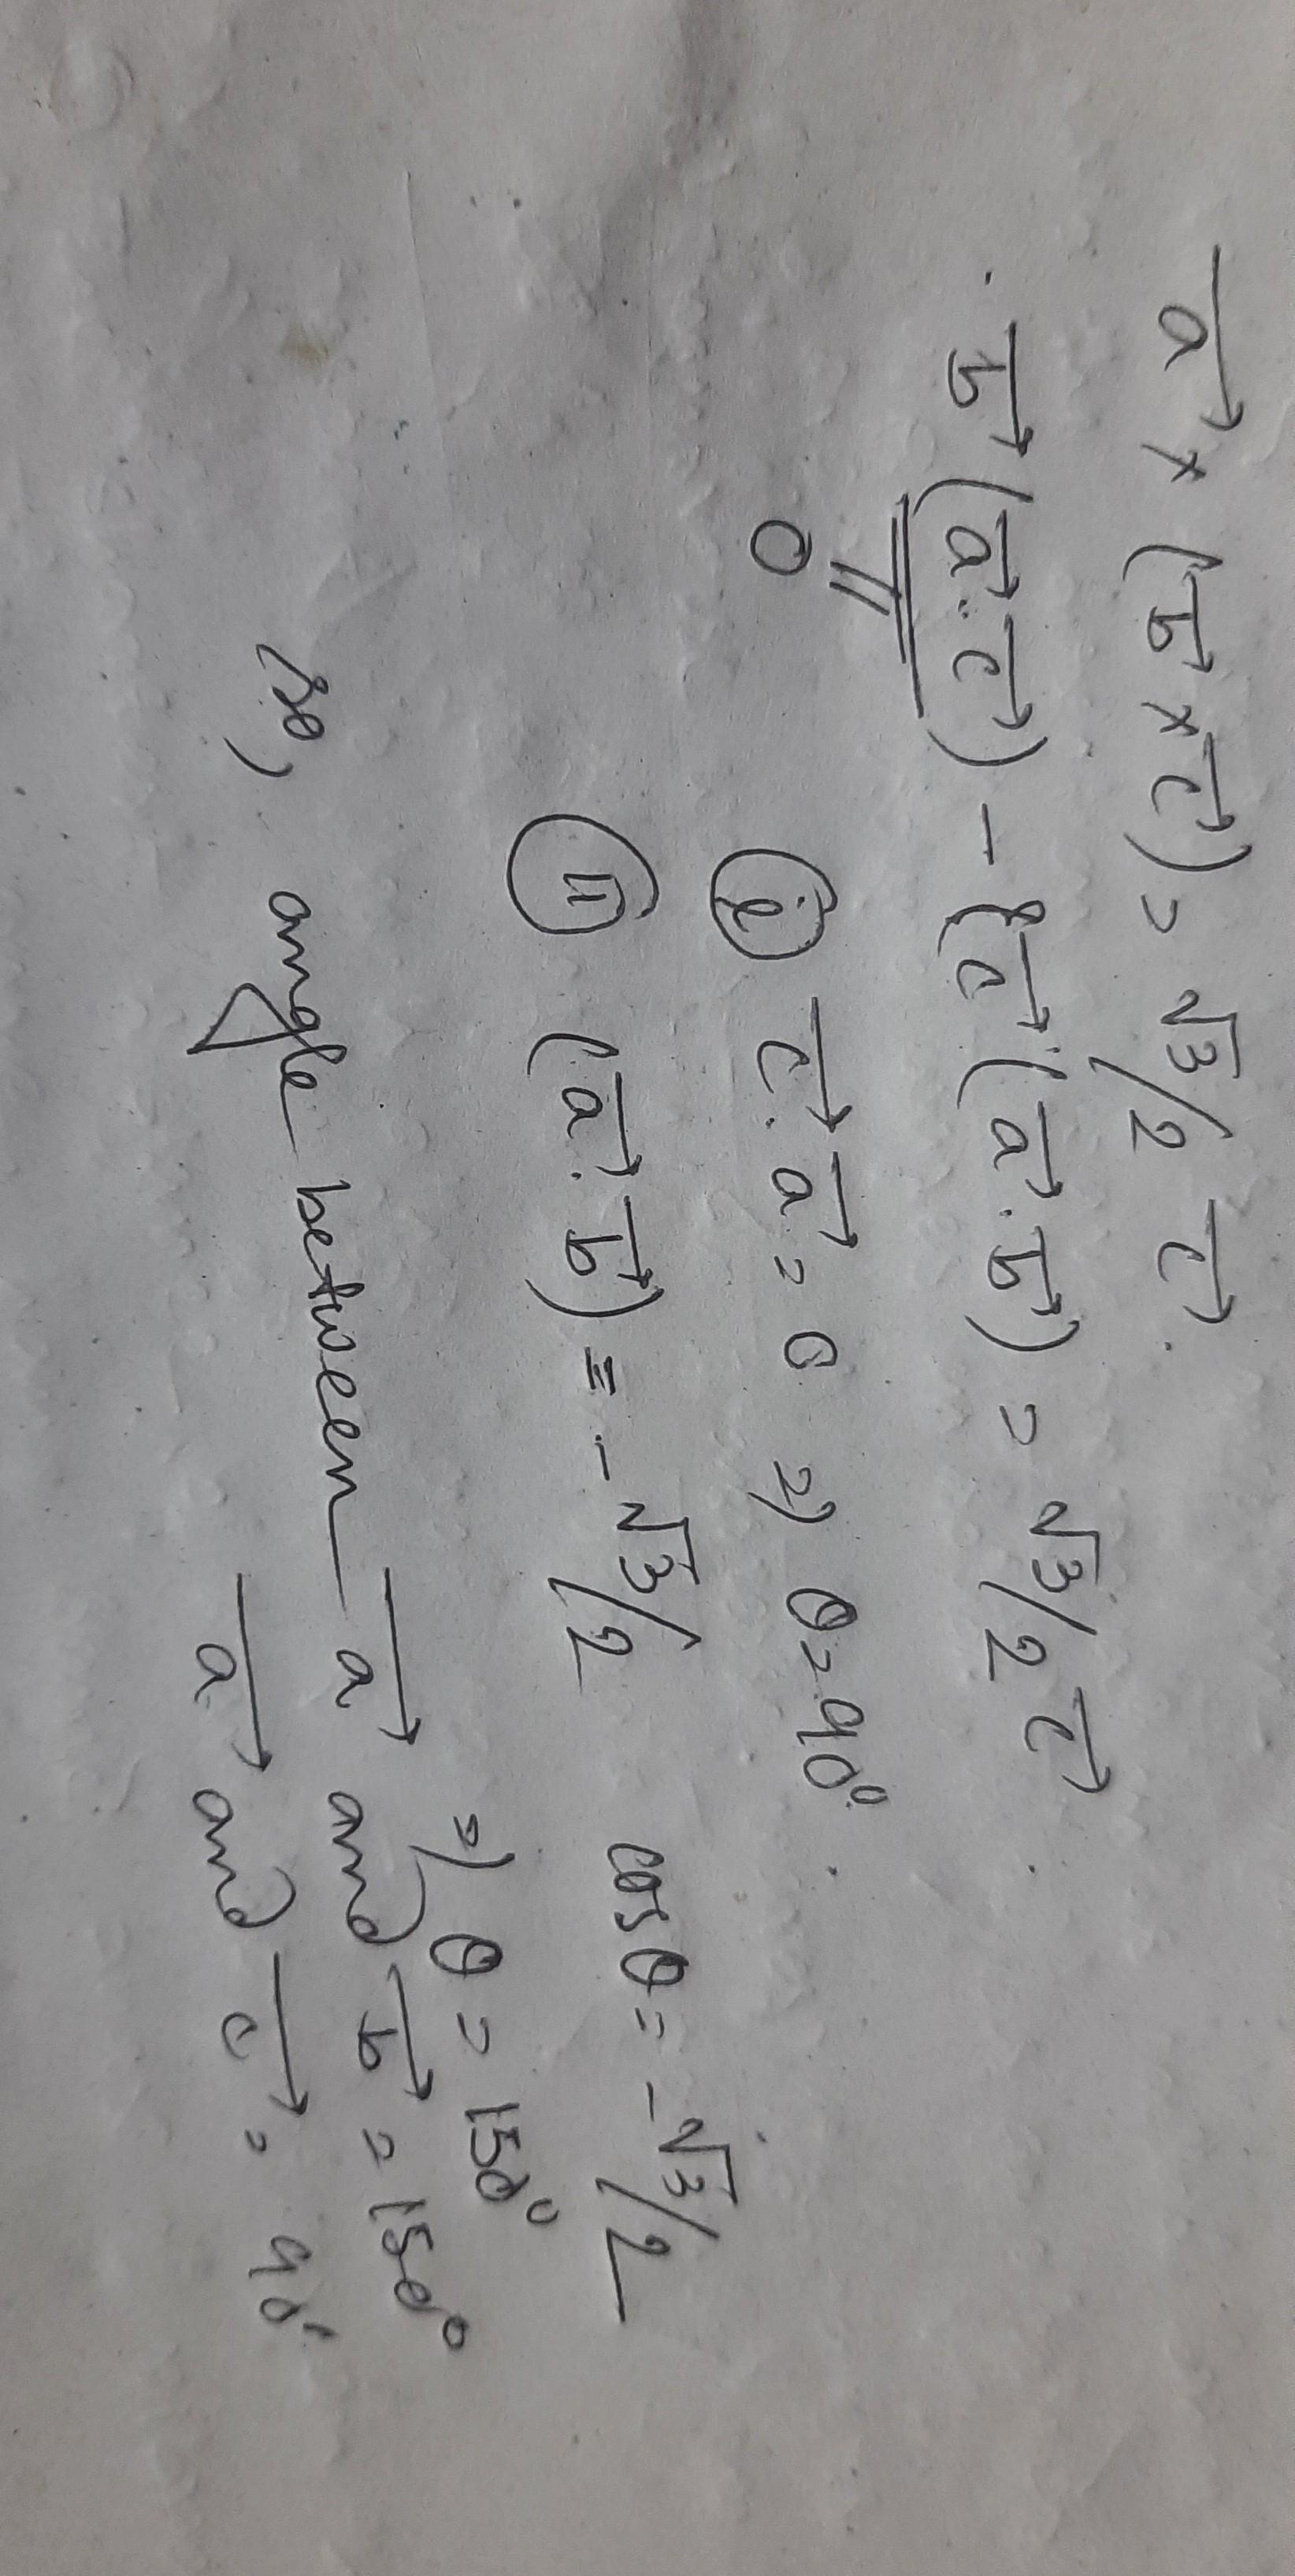 a⃗ × (b⃗ × c⃗) = √3/2 c⃗.
b⃗ (a⃗.c⃗) - {c⃗ (a⃗.b⃗) = √3/2 c⃗
||
0
(i) c⃗.a⃗ = 0 ⇒ θ = 90°
(ii) (a⃗.b⃗) = -√3/2 cosθ = -√3/2
⇒ θ = 150°
so, angle between a⃗ and b⃗ = 150°
a⃗ and c⃗ = 90°